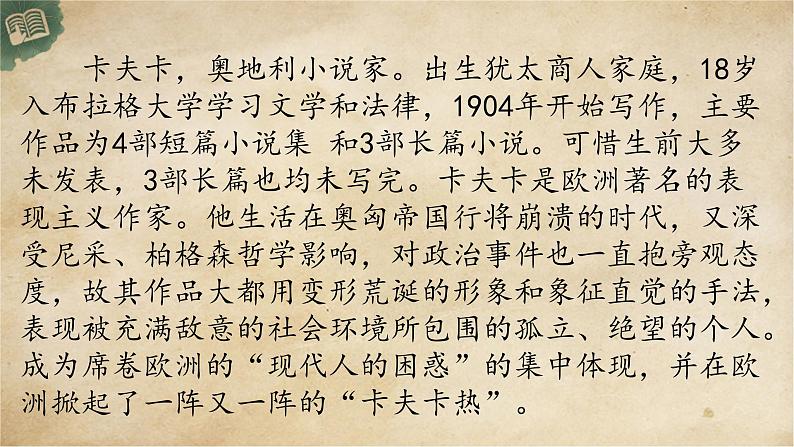 卡夫卡，奥地利小说家。出生犹太商人家庭，18岁
入布拉格大学学习文学和法律，1904年开始写作，主要
作品为4部短篇小说集 和3部长篇小说。可惜生前大多
未发表，3部长篇也均未写完。卡夫卡是欧洲著名的表
现主义作家。他生活在奥匈帝国行将崩溃的时代，又深
受尼采、柏格森哲学影响，对政治事件也一直抱旁观态
度，故其作品大都用变形荒诞的形象和象征直觉的手法，
表现被充满敌意的社会环境所包围的孤立、绝望的个人。
成为席卷欧洲的“现代人的困惑”的集中体现，并在欧
洲掀起了一阵又一阵的“卡夫卡热”。